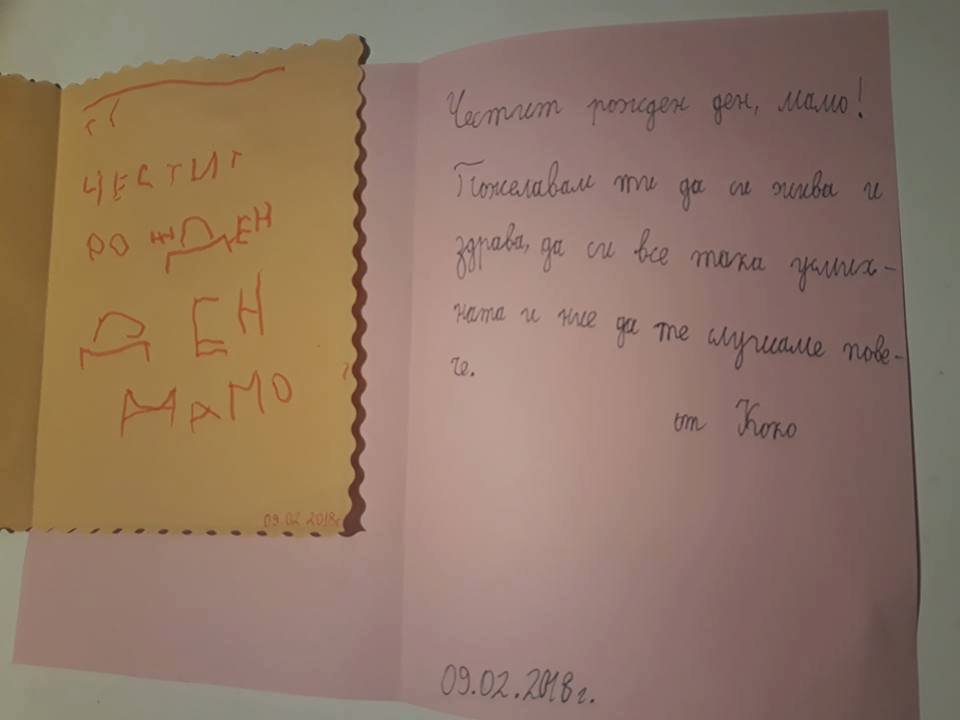 ЧЕСТИТ
РОЖДЕН
ДЕН
МАМО
09.02.2018г.
Честит рожден ден, мамо!
Пожелавам ти да си жива и
здрава, да си все така усмих-
ната и ние да те слушаме пове-
че.
от Коко
09.02.2018г.